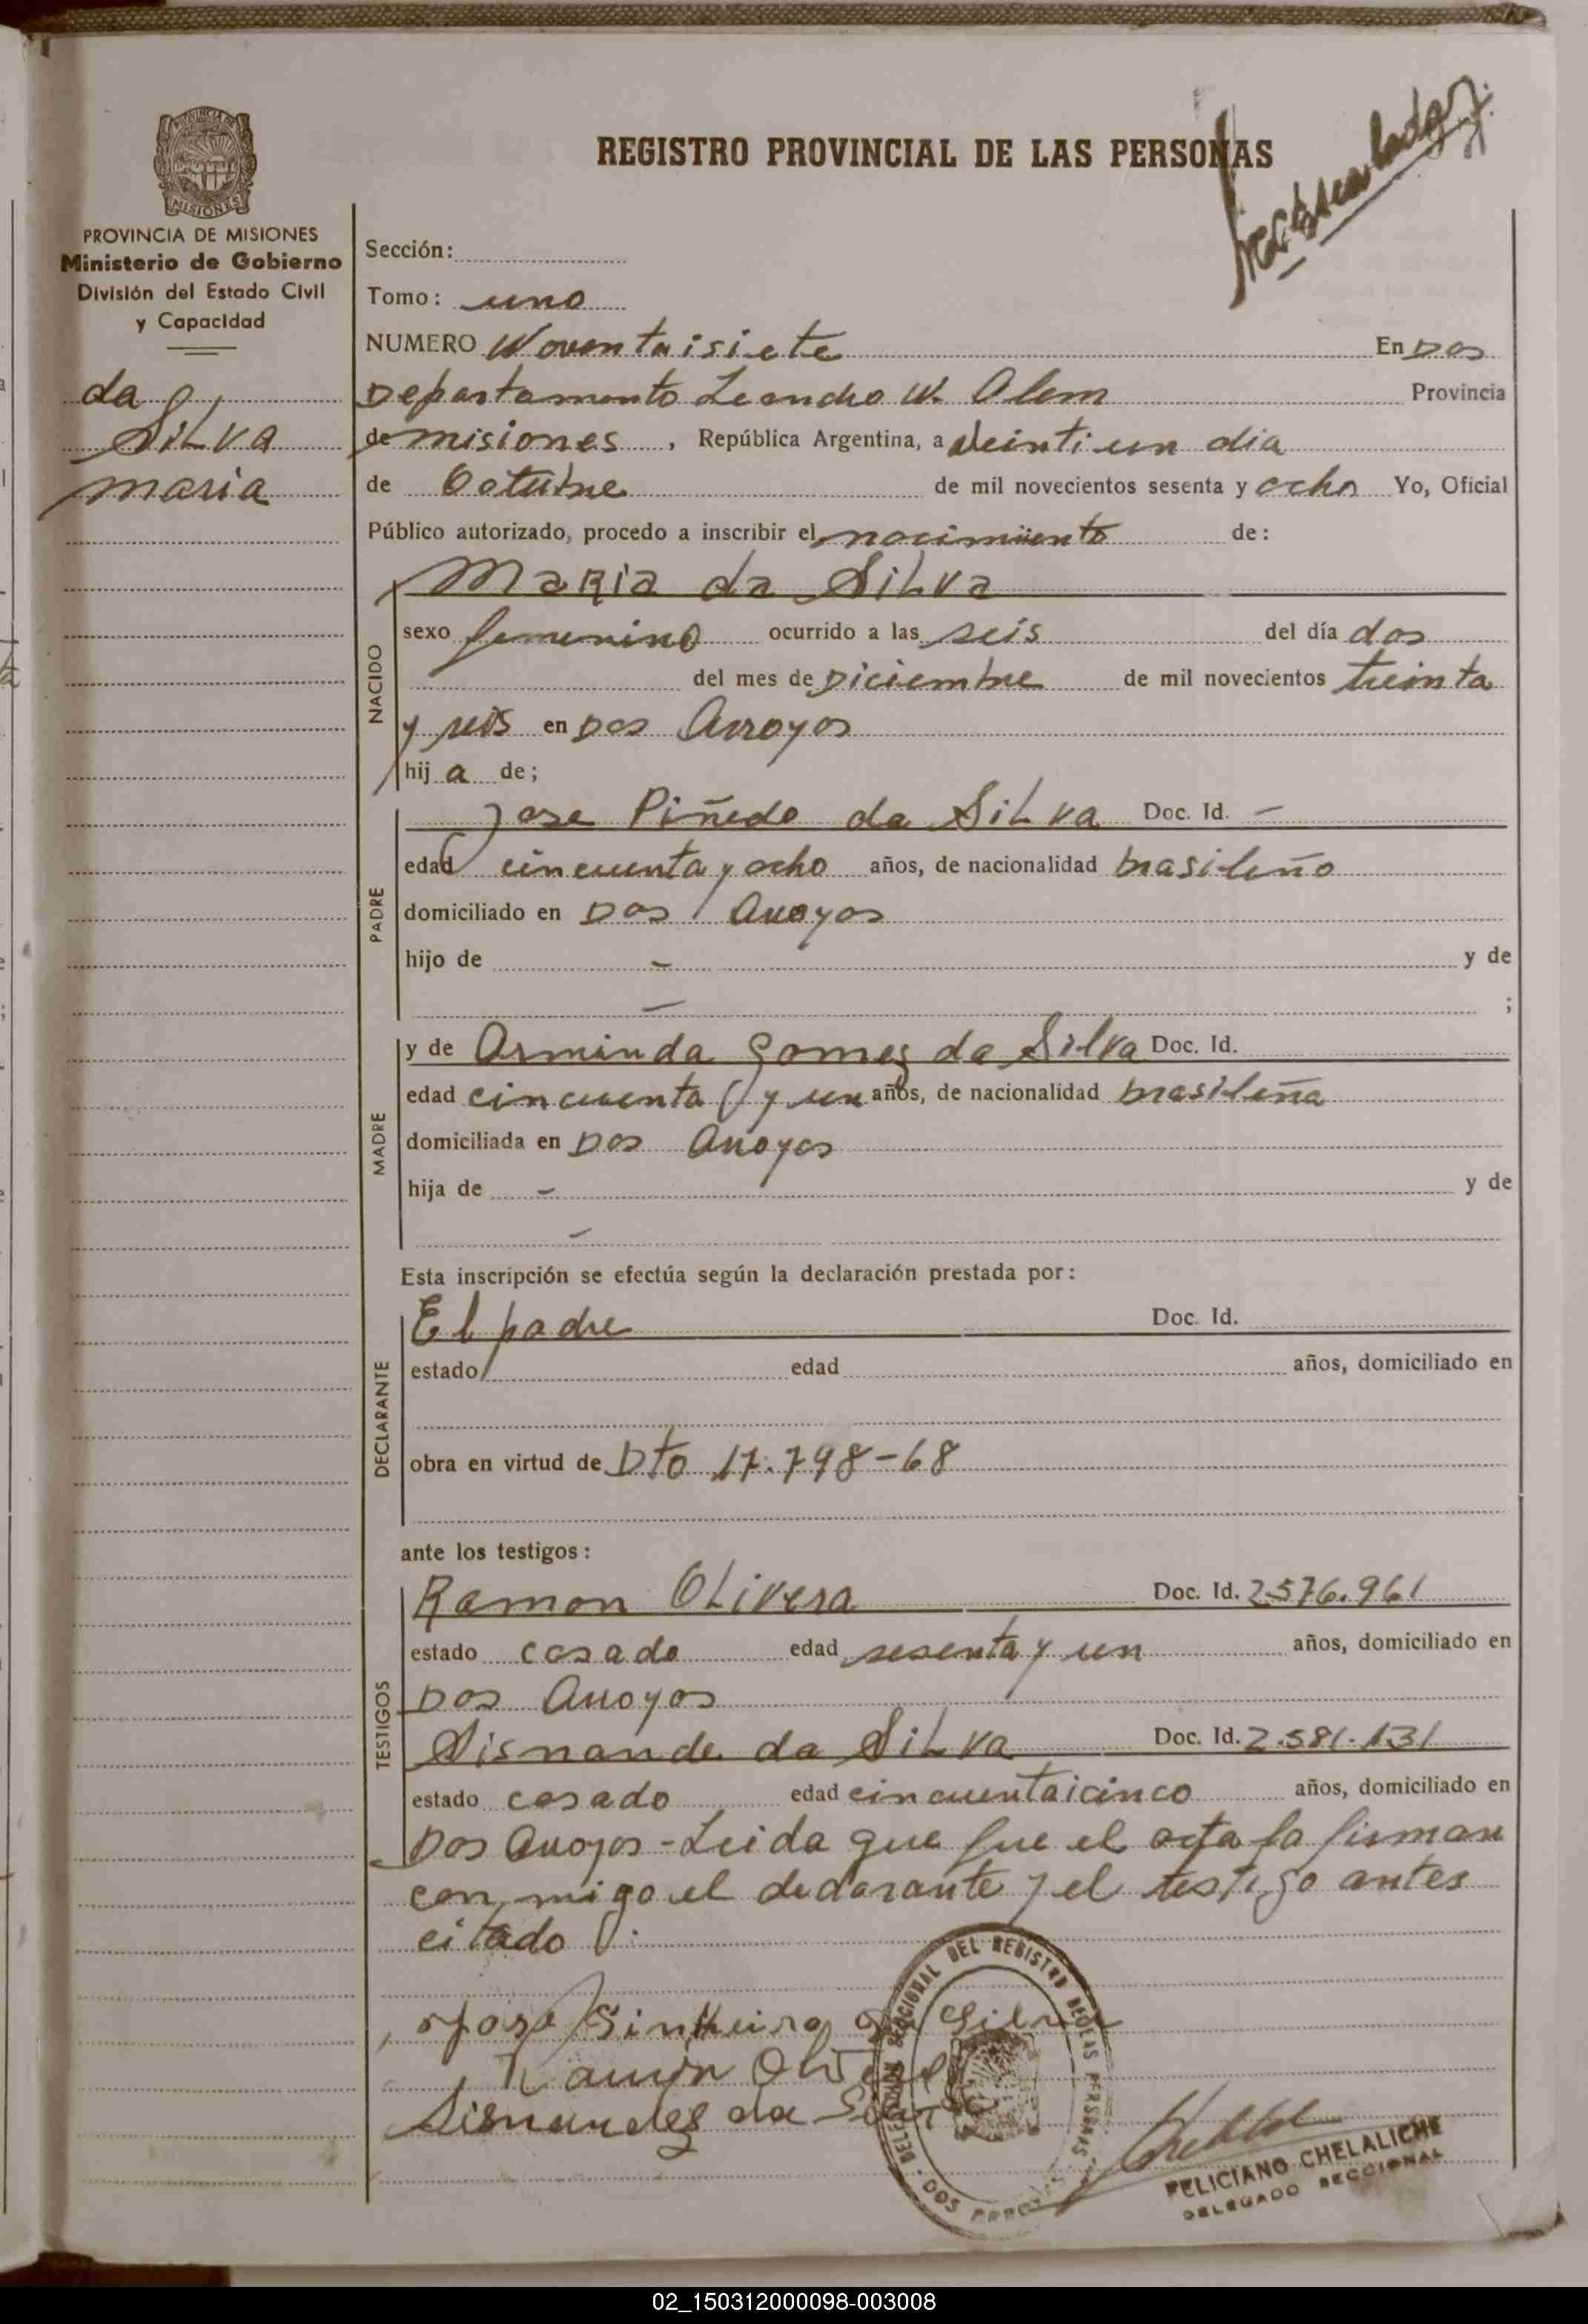 REGISTRO PROVINCIAL DE LAS PERSONAS
PROVINCIA DE MISIONES
MISIONES
PROVINCIA DE MISIONES
Ministerio de Gobierno
División del Estado Civil
y Capacidad
da
Silva
maria
Sección:
Tomo: uno
NUMERO Noventaisiete En Dos
Departamento Leandro N. Alem Provincia
de misiones, República Argentina, a Veintiun dia
de Octubre de mil novecientos sesenta y ocho Yo, Oficial
Público autorizado, procedo a inscribir el nacimiento de:
NACIDO
Maria da Silva
sexo femenino ocurrido a las seis del día dos
del mes de Diciembre de mil novecientos treinta
y seis en Dos Arroyos
hij a de;
PADRE
Jose Piñedo da Silva Doc. Id. -
edad cincuenta y ocho años, de nacionalidad brasileño
domiciliado en Dos Arroyos
hijo de - y de
- ;
MADRE
y de Arminda Gomez da Silva Doc. Id.
edad cincuenta y un años, de nacionalidad brasileña
domiciliada en Dos Arroyos
hija de - y de
-
Esta inscripción se efectúa según la declaración prestada por:
DECLARANTE
El padre Doc. Id.
estado edad años, domiciliado en
obra en virtud de Dto 17.798-68
ante los testigos:
TESTIGOS
Ramon Olivera Doc. Id. 2576.961
estado casado edad sesenta y un años, domiciliado en
Dos Arroyos
Sisnande da Silva Doc. Id. 2.581.131
estado casado edad cincuentaicinco años, domiciliado en
Dos Arroyos - Leida que fue el acta la firman
con migo el declarante y el testigo antes
citado
da Silva
Ramón
Sisnandes da
DELEGACION SECCIONAL DEL REGISTRO DE LAS PERSONAS
DOS ARROYOS
FELICIANO CHELALICHE
DELEGADO SECCIONAL
02_150312000098-003008